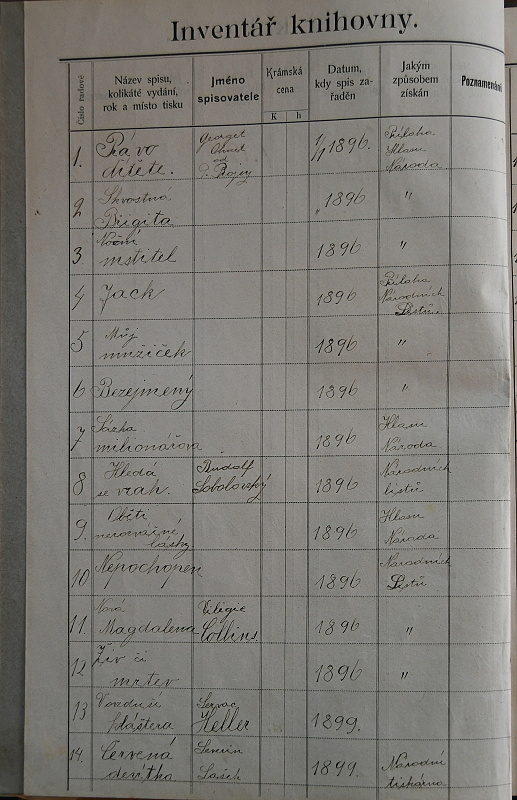 Inventář knihovny.
Číslo řadové
Název spisu,
kolikáté vydání,
rok a místo tisku
Jméno
spisovatele
Krámská
cena
K h
Datum,
kdy spis za-
řaděn
Jakým
způsobem
získán
Poznamenání
1. Právo
dítěte.
Georget
Ohnet
od
1/1 1896.
Příloha
Hlasu
Národa
2 Skvostná
Brigita
" 1896 "
3. Noční
mstitel
1896 "
4 Jack 1896
Příloha
Národních
Listů.
5 Můj
mužíček
1896 "
6 Bezejmený 1896 "
7 Sázka
milionářova
1896
Hlasu
Národa
8 Hledá
se vrah.
Rudolf
Sobolovský
1896
Národních
listů
9. Oběti
nerovné
lásky
1896
Hlasu
Národa
10 Nepochopen 1896
Národních
Listů
11. Nová
Magdalena
Collins.
1896 "
12 Živ či
mrtev
1896 "
13
pláštěra
Servac
Heller
1899.
14. Červená
devítka
Severin
1899.
Národní
tiskárna